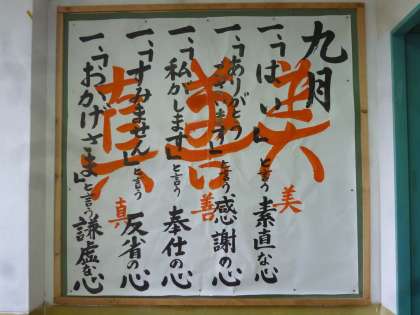 九月
一、「はい」と言う素直な心
一、「ありがとうございます」と言う感謝の心
一、「私がします」と言う奉仕の心
一、「すみません」と言う反省の心
一、「おかげさま」と言う謙虚な心
美
善
真
美
善
真